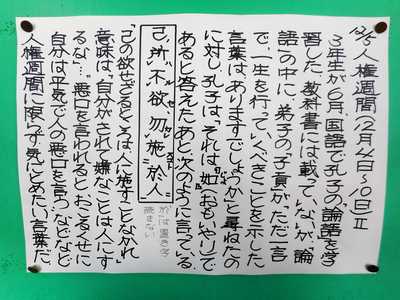 12/5 人権週間(12月4日〜10日)Ⅱ
3年生が6月、国語で孔子の「論語」を学
習した。教科書には載っていないが、論
語の中に、弟子の子貢が、ただ一言
で、一生を行っていくべきことを示した
言葉はありますでしょうかと尋ねたの
に対し、孔子は、それは「如」(おもいやり)で
あると答えたあと、次のように言っている。
己、所不欲、勿施於人
於は置き字
読まない
「己の欲せざるところは、人に施すことなかれ
意味は、「自分がされて嫌なことは、人にす
るな…。悪口を言われるとおこるくせに
自分は平気で人の悪口を言う」などなど
人権週間に限らず気にとめたい言葉だ。